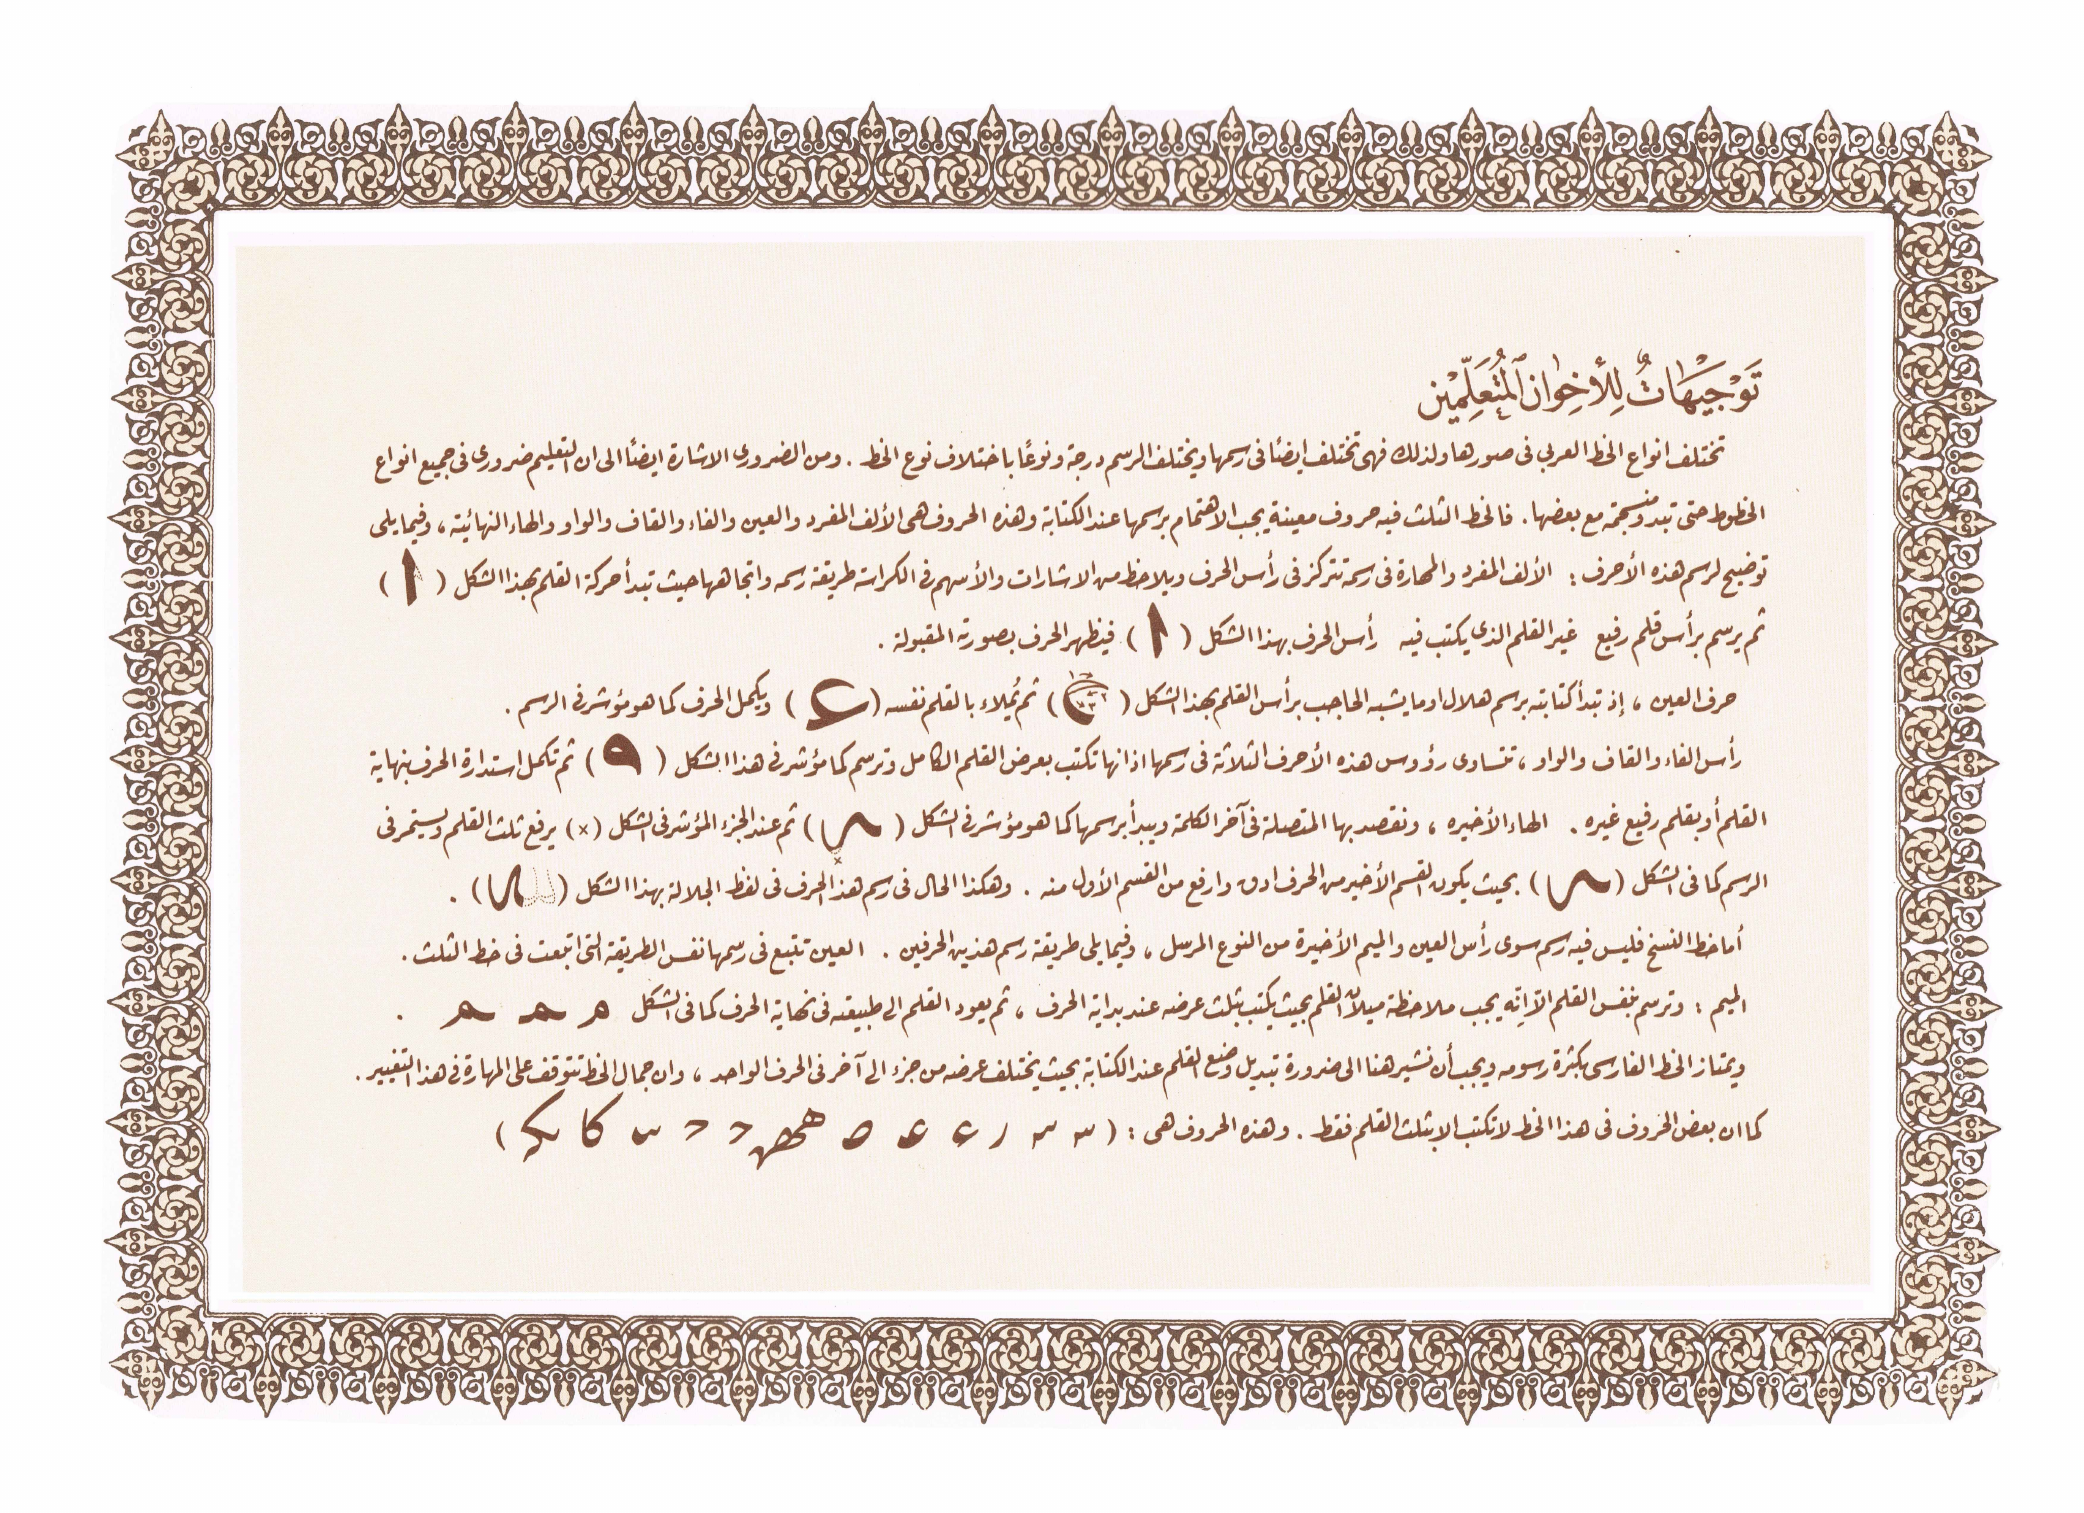 تَوْجِيهَاتٌ لِلْأَخِوَانِ الْمُتَعَلِّمِيْن
تختلف انواع الخط العربي فى صورها ولذلك فهى تختلف ايضاً فى رسمها ويختلف الرسم درجة ونوعًا باختلاف نوع الخط . ومن الضرورى الاشارة ايضاً الى ان التعليم ضرورى فى جميع انواع
الخطوط حتى تبدو منسجمة مع بعضها . فالخط الثلث فيه حروف معينة يجب الاهتمام برسمها عند الكتابة وهذه الحروف هى الألف المفرد والعين والفاء والقاف والواو والهاء النهائية ، وفيما يلى
توضيح لرسم هذه الأحرف : الألف المفرد والمهارة فى رسمه تتركز فى رأس الحرف ويلاحظ من الاشارات والأسهم فى الكراسة طريقة رسمه واتجاهها حيث تبدأ حركة القلم بهذا الشكل ( ا )
ثم يرسم برأس قلم رفيع غير القلم الذى يكتب فيه رأس الحرف بهذا الشكل ( ا ) فيظهر الحرف بصورته المقبولة .
حرف العين ، إذ تبدأ كتابته برسم هلال او ما يشبه الحاجب برأس القلم بهذا الشكل ( ) ثم يُملاء بالقلم نفسه ( ) ويكمل الحرف كما هو مؤشر فى الرسم .
رأس الفاء والقاف والواو ، تتساوى رؤوس هذه الأحرف الثلاثة فى رسمها اذ انها تكتب بعرض القلم الكامل وترسم كما مؤشر فى هذا الشكل ( ) ثم تكمل استدارة الحرف بنهاية
القلم أو بقلم رفيع غيره . الهاء الأخيره ، ونقصد بها المتصلة فى آخر الكلمة ويبدأ برسمها كما هو مؤشر فى الشكل ( ) ثم عند الجزء المؤشر فى الشكل (×) يرفع ثلث القلم ويستمر فى
الرسم كما فى الشكل ( ) بحيث يكون القسم الأخير من الحرف ادق وارفع من القسم الأول منه . وهكذا الحال فى رسم هذا الحرف فى لفظ الجلالة بهذا الشكل ( ) .
أما خط النسخ فليس فيه رسم سوى رأس العين والميم الأخيرة من النوع المرسل ، وفيما يلى طريقة رسم هذين الحرفين . العين تتبع فى رسمها نفس الطريقة التى اتبعت فى خط الثلث .
الميم : وترسم بنفس القلم الاّ انّه يجب ملاحظة ميلان القلم بحيث يكتب بثلث عرضه عند بداية الحرف ، ثم يعود القلم الى طبيعته فى نهاية الحرف كما فى الشكل م م م .
ويمتاز الخط الفارسى بكثرة رسومه ويجب أن نشير هنا الى ضرورة تبديل وضع القلم عند الكتابة بحيث يختلف عرضه من جزء الى آخر فى الحرف الواحد ، وان جمال الخط تتوقف على المهارة فى هذا التغيير .
كما ان بعض الحروف فى هذا الخط لا تكتب الا بثلث القلم فقط . وهذه الحروف هى : ( )